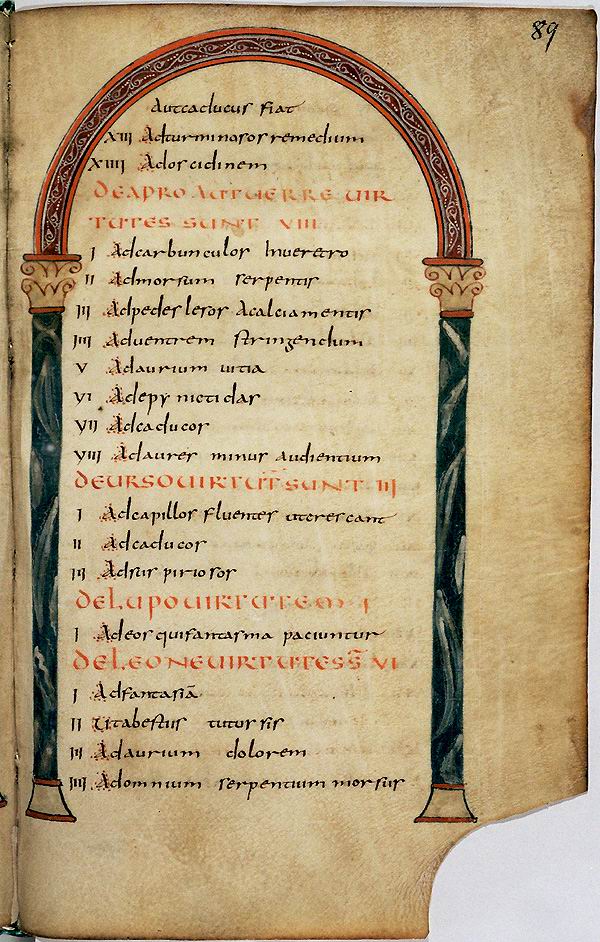 89
Aut caducus fiat
XIII Ad turminosos remedium
XIIII Ad oscidinem
DE APRO AUT UERRE UIR
TUTES SUNT VIII
I Ad carbunculos In ueretro
II Ad morsum serpentis
III Ad pedes lesos Acalciamentis
IIII Ad uentrem stringendum
V Ad aurium uitia
VI Adepynictidas
VII Ad caducos
VIII Ad aures minus audientium
DE URSO UIRTUT SUNT III
I Ad capillos fluentes
II Ad caducos
III Ad suspiriosos
DE LUPO UIRTUTEM I
I Ad eos qui fantasma paciuntur
DE LEONE UIRTUTES S̄ VI
I Ad fantasiā
II Ut abestiis tutus sis
III Ad aurium dolorem
IIII Ad omnium serpentium morsus